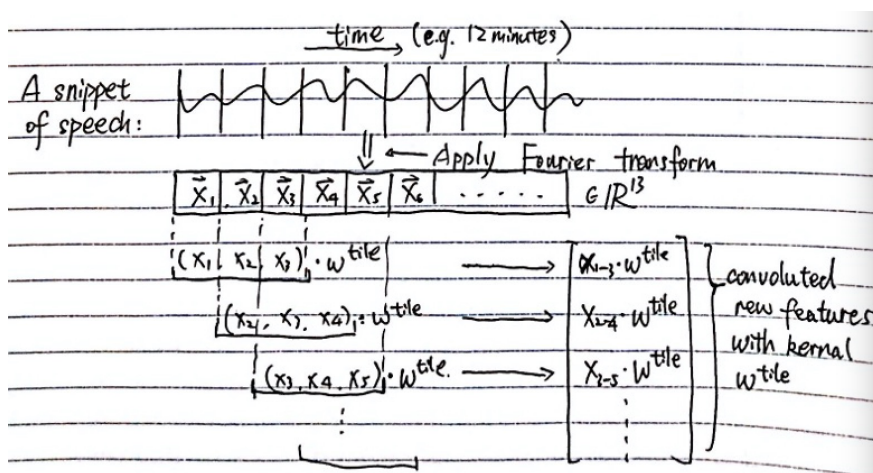 time (e.g. 12 minutes)
A snippet
of speech:
Apply Fourier transform
X₁ X₂ X₃ X₄ X₅ X₆ ..... ∈ ℝ¹³
(x₁, x₂, x₃) · w^tile → x₁₋₃ · w^tile
(x₂, x₃, x₄) · w^tile → X₂₋₄ · w^tile
(x₃, x₄, x₅) · w^tile. → X₃₋₅ · w^tile
convoluted
new features
with kernal
w^tile